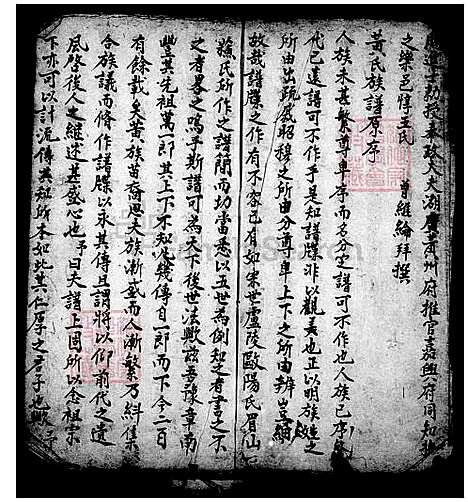 進士勅授奉政大夫湖廣黃州府推官嘉興府同知
之樂邑惇王氏　曾維綸拜撰
黃氏族譜原序
人族未甚繁尊卑序而名分定譜可不作也人族已
代已遠譜可不作乎是知譜牒非以觀美也正以明族姓之
所由出疏戚昭穆之所由分尊卑上下之所由辨豈細
故哉譜牒之作有不容已有如宋世廬陵歐陽氏眉山
蘇氏所作之譜簡而切當悉以五世為例知之者書之不
之者畧之嗚乎斯譜可為天下後世法歟茲吾豫章南
豐其先祖萬一郎其上下不知凡幾傳自一郎而下今二百
有餘載矣黃族苗裔思夫族漸盛而人漸繁乃糾集
合族議而脩作譜牒以永其傳且謂將以仰前代之遺
風啓後人之繼述甚盛心也予曰夫譜上固所以念祖宗
下亦可以計流傳其知所本如此其仁厚之君子也歟予